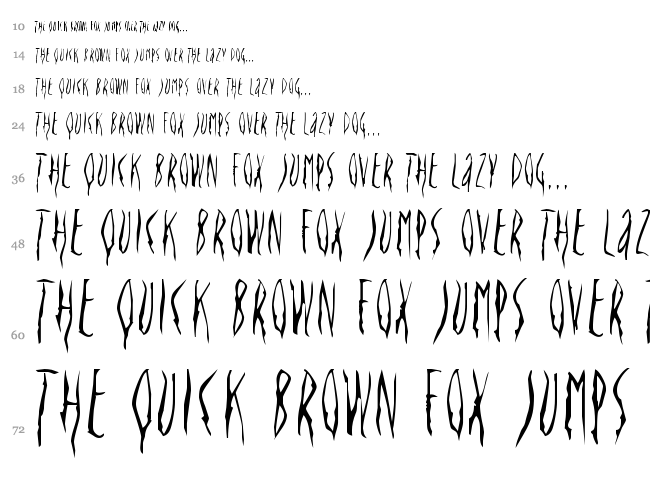 10 THE QUICK BROWN FOX JUMPS OVER THE LAZY DOG...
14 THE QUICK BROWN FOX JUMPS OVER THE LAZY DOG...
18 THE QUICK BROWN FOX JUMPS OVER THE LAZY DOG...
24 THE QUICK BROWN FOX JUMPS OVER THE LAZY DOG...
36 THE QUICK BROWN FOX JUMPS OVER THE LAZY DOG...
48 THE QUICK BROWN FOX JUMPS OVER THE LAZ
60 THE QUICK BROWN FOX JUMPS OVER T
72 THE QUICK BROWN FOX JUMPS